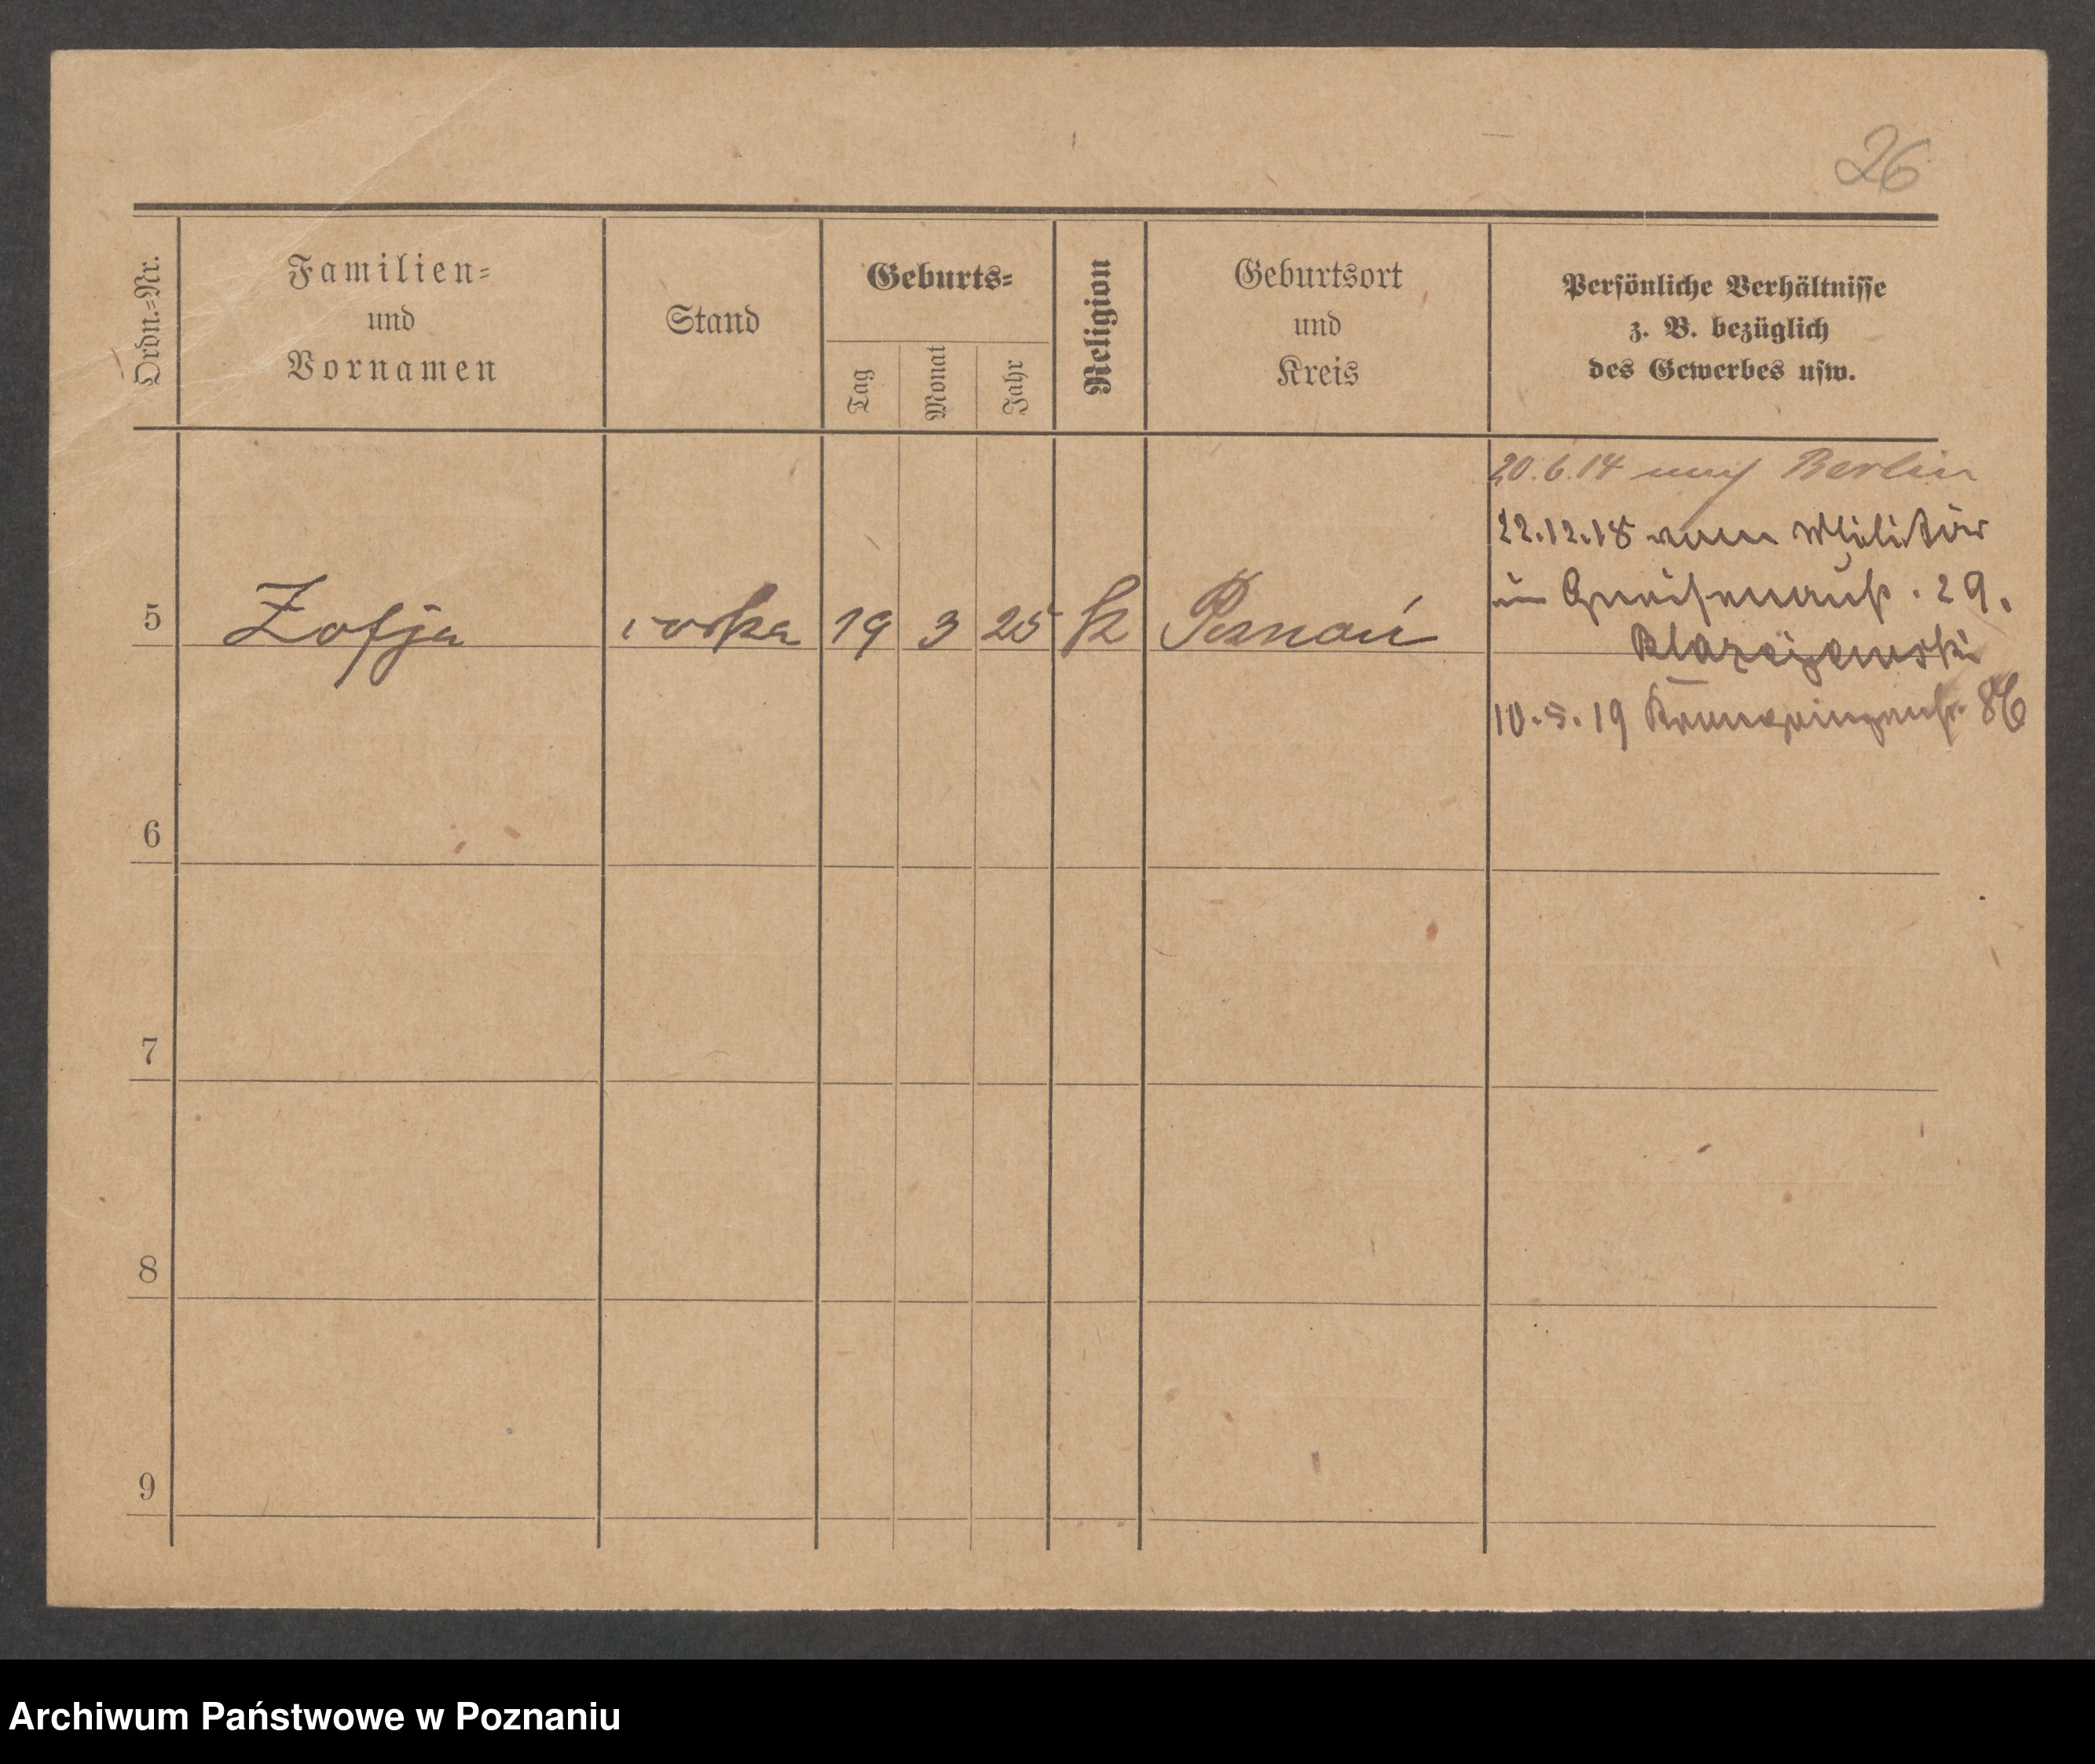 26
Ordn.=Nr.
Familien=
und
Vornamen
Stand
Geburts=
Tag
Monat
Jahr
Religion
Geburtsort
und
Kreis
Persönliche Verhältnisse
z. B. bezüglich
des Gewerbes usw.
20.6.14 nach Berlin
22.12.18 vom Militär
in Gneisenaustr. 29.
5 Zofja córka 19 3 25 k Poznań
10.5.19 Kronprinzenstr. 86
6
7
8
9
Archiwum Państwowe w Poznaniu